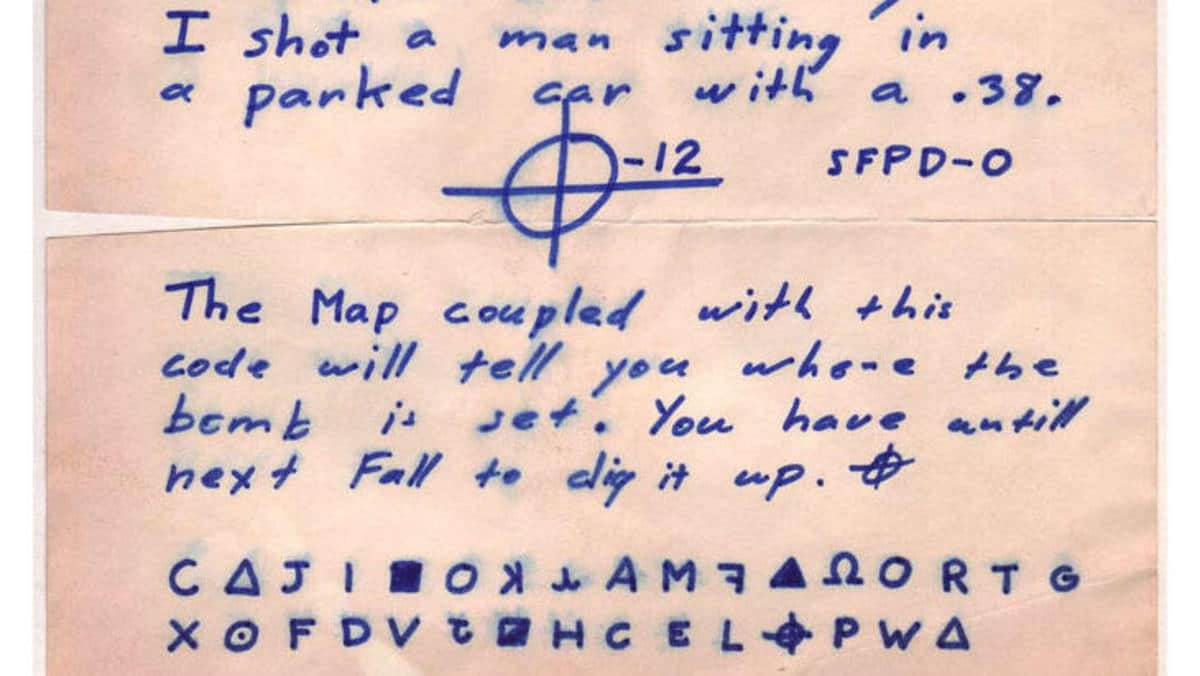 I shot a man sitting in
a parked car with a .38.
-12 SFPD-0
The Map coupled with this
code will tell you whore the
bomb is set. You have untill
next Fall to dig it up. ⌖
C △ J I ■ O ꓘ ⅄ A M ꟻ ▲ Ω O R T G
X ⊙ F D V Ʇ ◪ H C E L ⌖ P W △